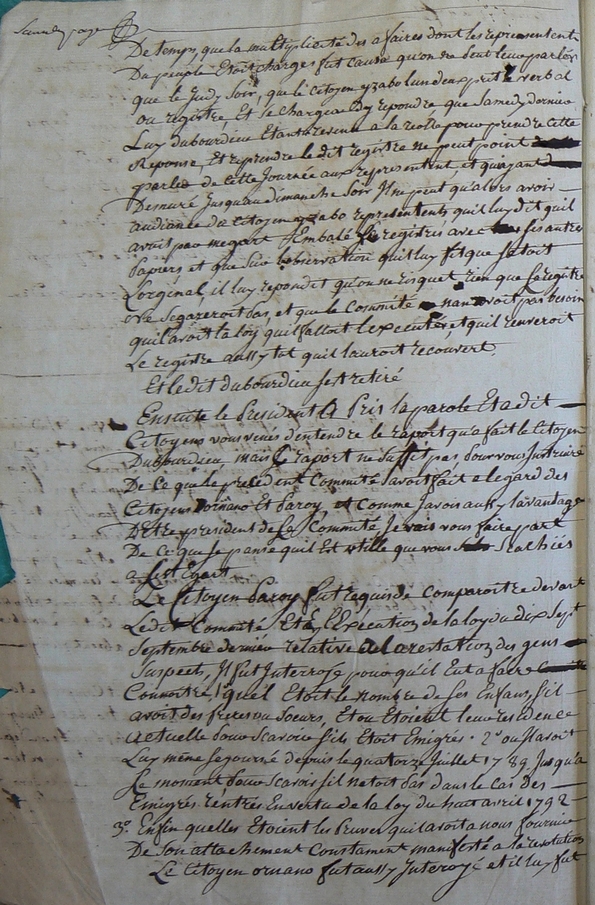 De temps, que la multiplicité des afaires dont les representents
Du peuple Etoit charges fut cause qu'on ne peut leur parler
que le Judy Soir, que le citoyen yzabo lun deux prit le verbal
ou registre, Et se chargea Dy repondre que Samedy dernier
Luy dubourdieu Etant revenu a la reolle pour prendre cette
Reponse Et reprendre le dit registre ne peut point
parler de cette Journée aux representent, et quayant
Demeuré Jusquau dimanche Soir Il ne peut qu'alors avoir
audiance da citoyen yzabo representents quil luy dit quil
avoit par megart Embalé le registre avec ses autres
papiers et que sur lobservation quil luy fit que setoit
Lorginal, il luy repondit qu'on ne risquet rien que le registre
ne segareroit pas, et que le Committé nan avoit pas besoin
quil avoit la loy quil falloit lexecuter et quil renveroit
Le registre aussy tot quil lauroit recouvert,
Et ledit dubourdieu sest retiré
Ensuite le President A Pris la parole Eta dit
Citoyens vous venés dentendre le raport qua fait le Citoyen
Dubourdieu, mais Ce raport ne suffit pas pour vous Instruire
De Ce que le precedent Committé avoit fait a legard des
Citoyens Dornano Et Paroy, et Comme Javois aussy lavantage
DEtre president de Ce Committé Je vais vous faire part
De Ce que Je panse quil Est utille que vous Scachiés
a Cest Egart
Le Citoyen Paroy fut requis de Comparoitre devant
Ledit Committé Et a lExécution de la loy du dix Sept
Septembre dernier relative a larestation des gens
Suspects, Il fut Interrogé pour qu'il Eut a faire
Connoitre, quel Etoit le nombre de ses Enfans, sil
avoit des freres ou Soeurs, Et ou Etoient leur residence
actuelle pour scavoir sils Etoit Emigrés. 2º ou Il avoit
Luy même sejourné depuis le quatorze Juillet 1789 Jusqu'a
Le moment pour Scavoir sil netoit pas dans le Cas des
Emigrés rentrés En vertu de la loy du huit avril 1792
3º Enfin quelles Etoient les Preuves quil avoit a nous fournir
De Son attachement Constament manifesté a la revolution
Le Citoyen ornano fut aussy Interogé et il luy fut